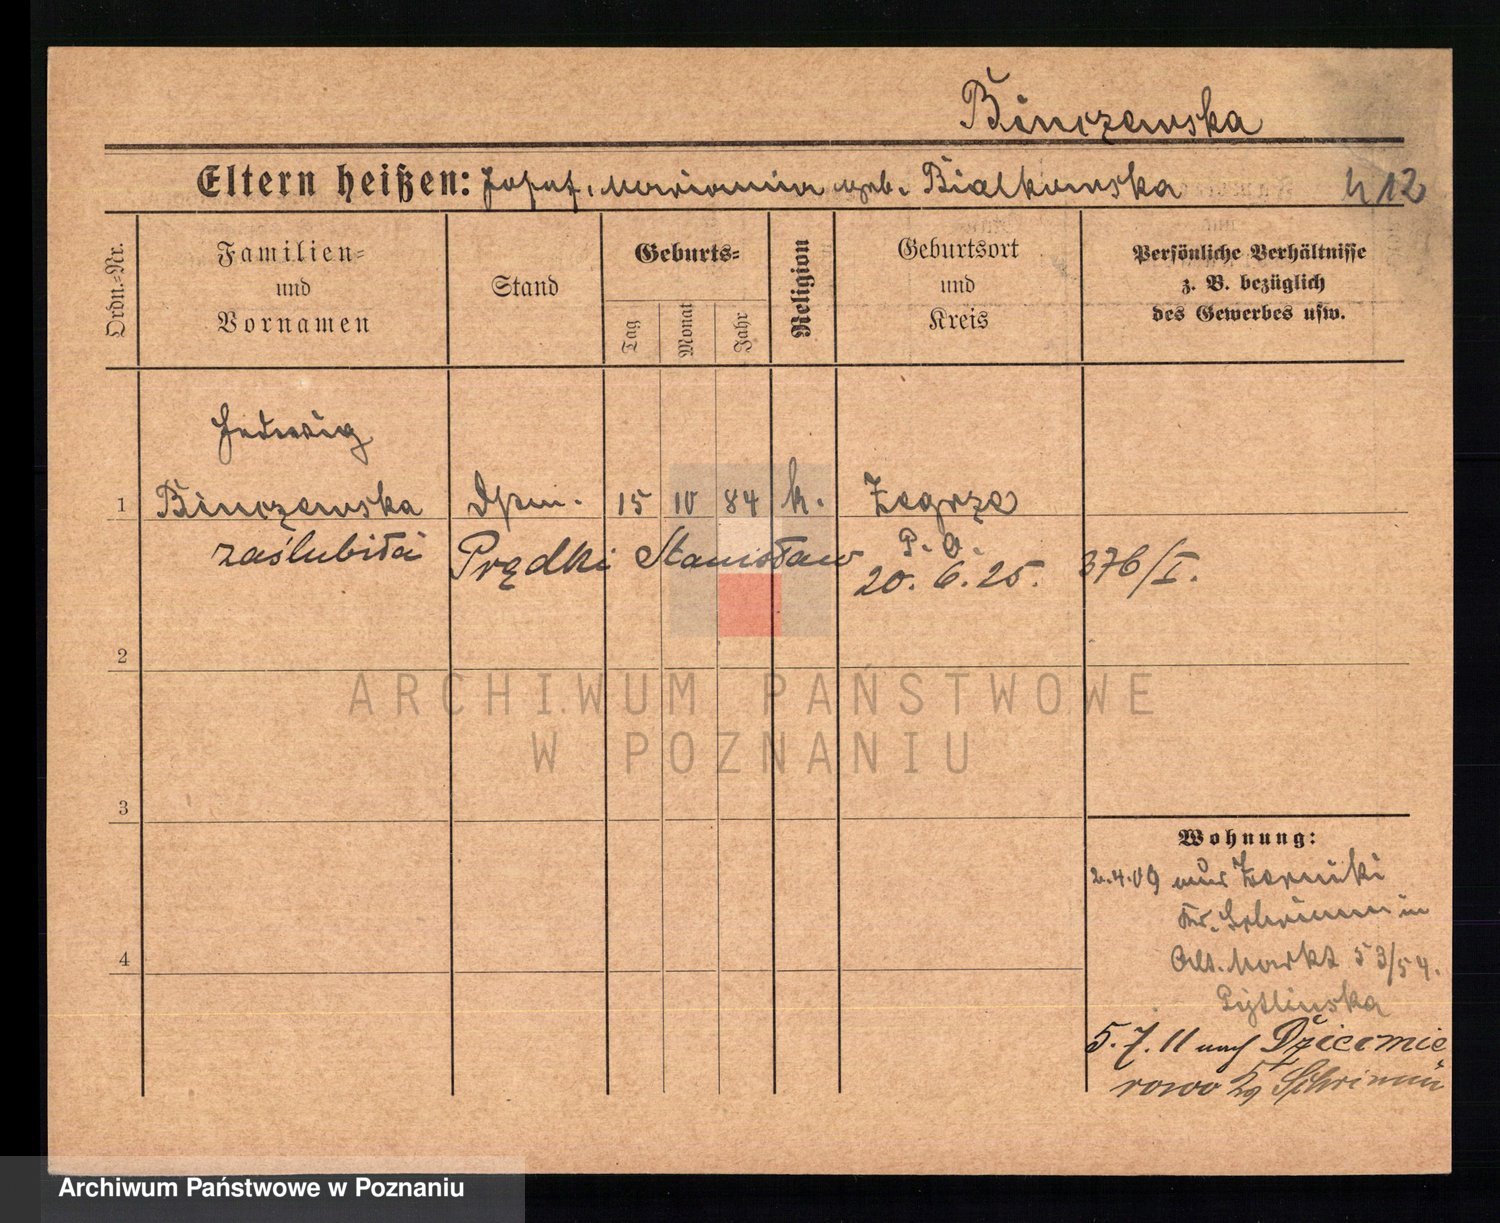 Binczewska
Eltern heißen: Josef, Marianna geb. Bialkowska
412
Ordn.-Nr.
Familien-
und
Vornamen
Stand
Geburts-
Tag
Monat
Jahr
Religion
Geburtsort
und
Kreis
Persönliche Verhältnisse
z. B. bezüglich
des Gewerbes usw.
Hedwig
1 Binczewska 15 10 84 k. Zegrze
P. O.
zaślubiła Prędki Stanisław 20. 6. 25. 376/I.
2
ARCHIWUM PAŃSTWOWE
W POZNANIU
3
Wohnung:
2.4.09 aus Zerniki
Kr. Schrimm in
Alt. Markt 53/54.
4
Pytlinska
5.7.11 nach Dzicomie
rowo Kr Schrimm
Archiwum Państwowe w Poznaniu